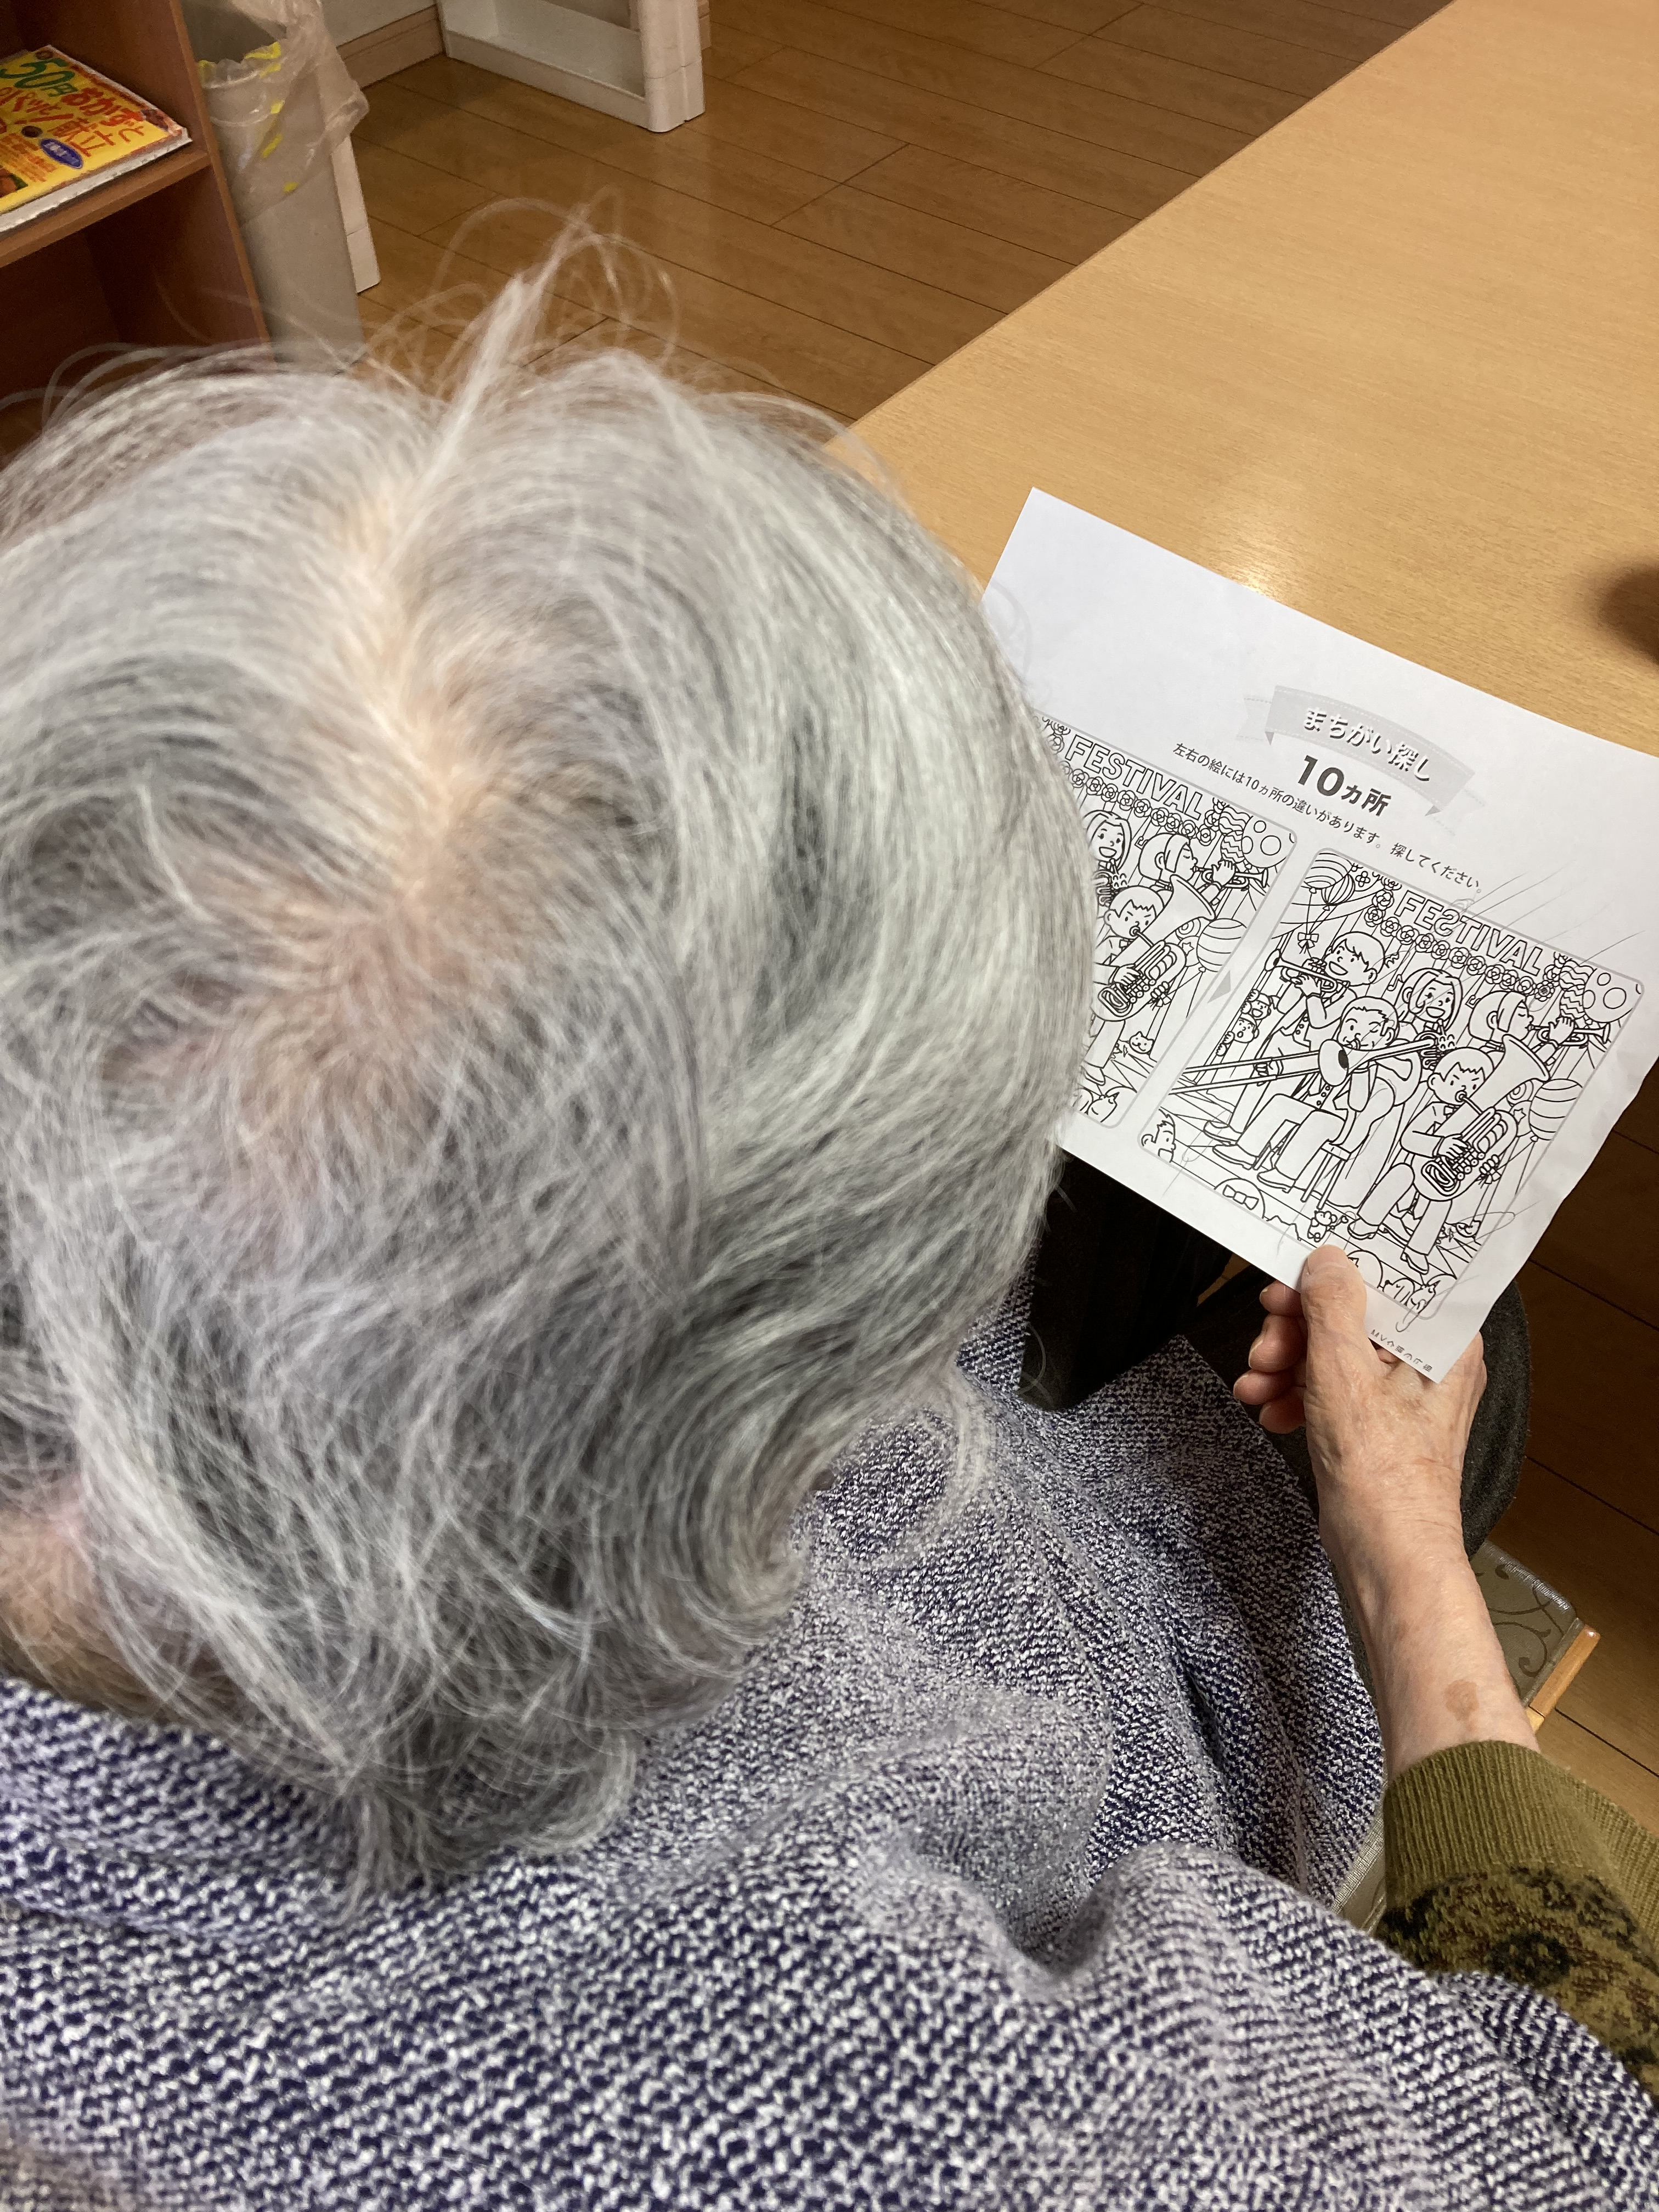 50円おかずと
献立
まちがい探し
10ヵ所
左右の絵には10ヵ所の違いがあります。探してください。
FESTIVAL
FEƧTIVAL